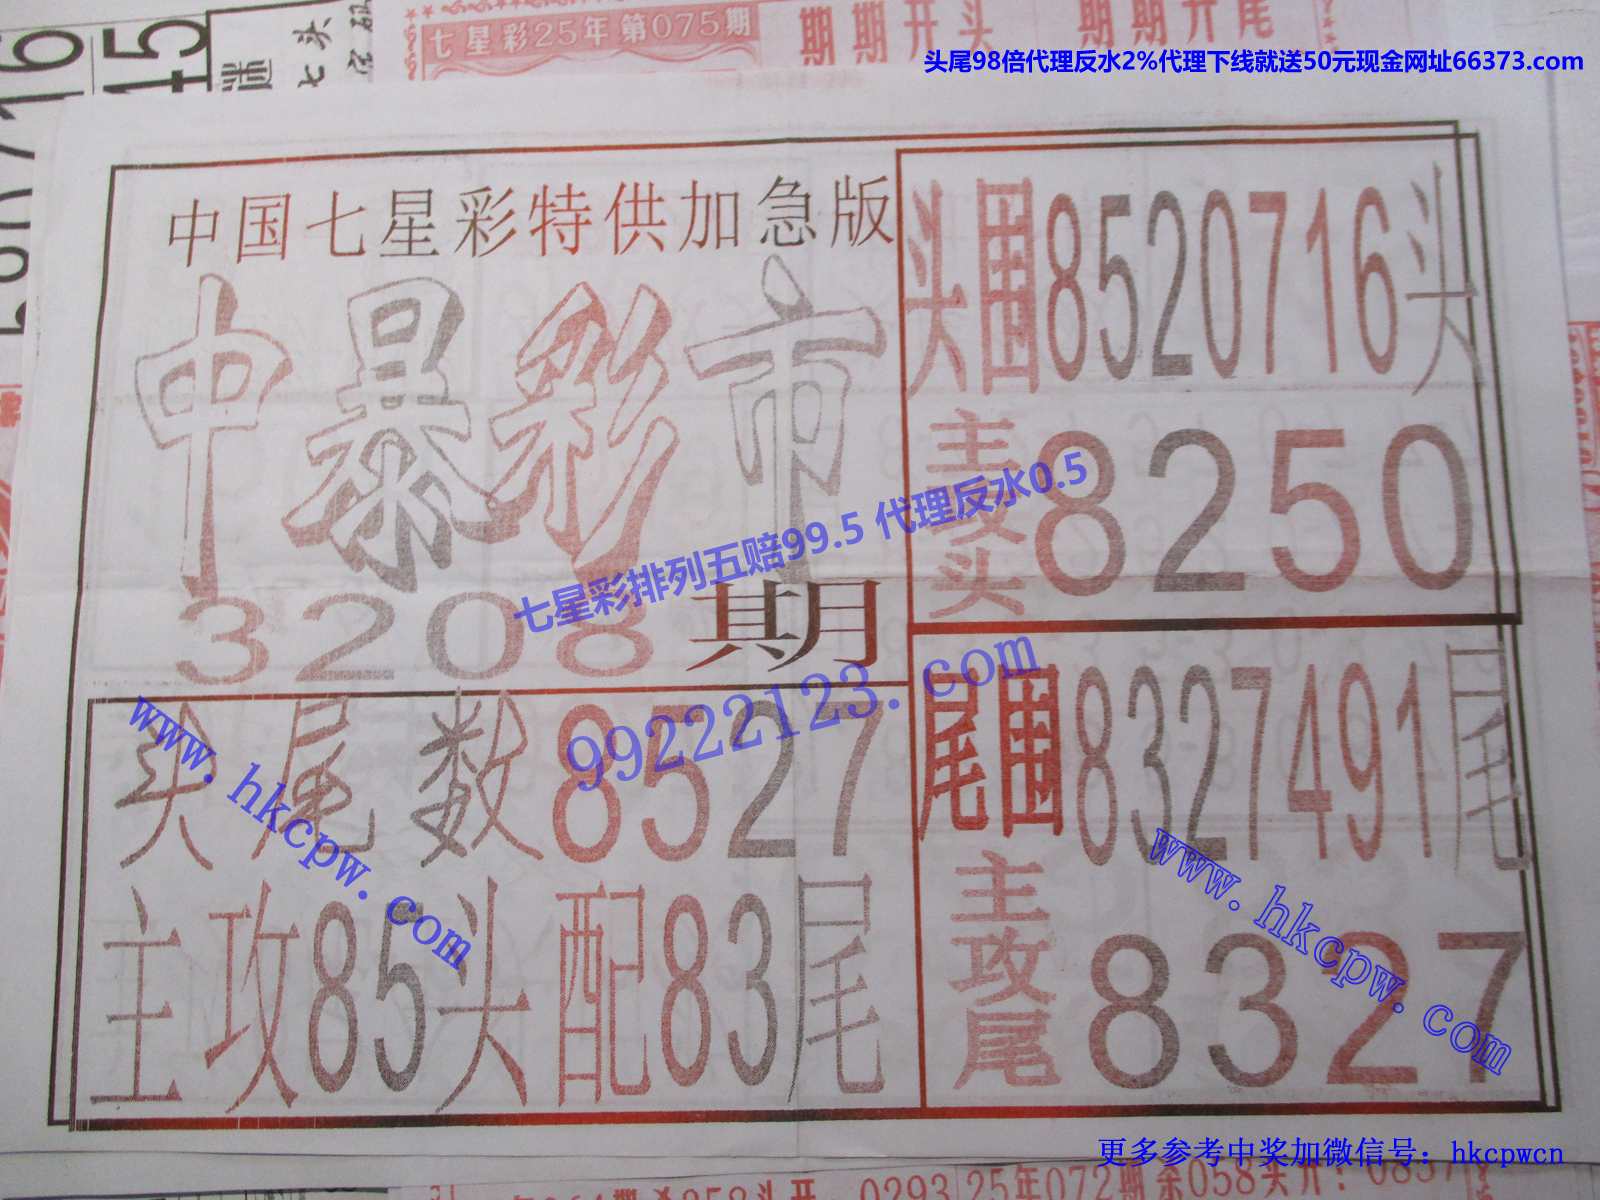 七星彩25年第075期
期期开头 期期开尾
头尾98倍代理反水2%代理下线就送50元现金网址66373.com
中国七星彩特供加急版
中暴彩市
3208期
头围8520716头
主攻头8250
七星彩排列五赔99.5 代理反水0.5
99222123.com
头尾数8527
主攻85头配83尾
尾围8327491尾
主攻尾8327
www.hkcpw.com
www.hkcpw.com
更多参考中奖加微信号：hkcpwcn
0293
25年072期杀058头开：0837